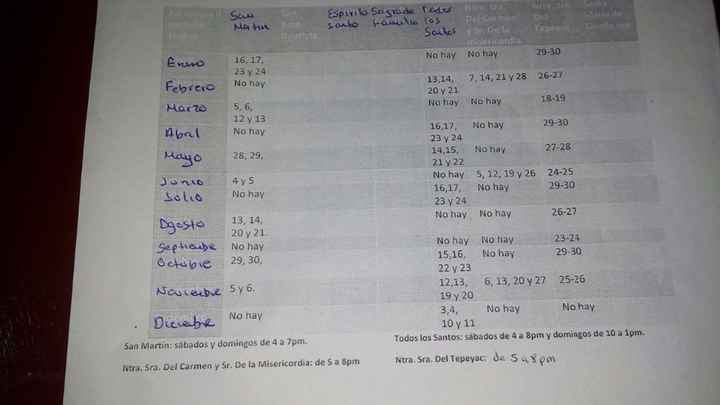 San Espiritu Sagrada Todos
Martin Santo Familia los
Santos
Enero 16, 17, No hay No hay 29-30
23 y 24
Febrero No hay 13,14, 7, 14, 21 y 28 26-27
20 y 21
Marzo 5, 6, No hay No hay 18-19
12 y 13
Abril No hay 16,17, No hay 29-30
23 y 24
Mayo 28, 29, 14,15, No hay 27-28
21 y 22
Junio 4 y 5 No hay 5, 12, 19 y 26 24-25
Julio No hay 16,17, No hay 29-30
23 y 24
Agosto 13, 14, No hay No hay 26-27
20 y 21.
Septiembre No hay No hay No hay 23-24
Octubre 29, 30, 15,16, No hay 29-30
22 y 23
Noviembre 5 y 6. 12,13, 6, 13, 20 y 27 25-26
19 y 20
Diciembre No hay 3,4, No hay No hay
10 y 11
San Martin: sábados y domingos de 4 a 7pm. Todos los Santos: sábados de 4 a 8pm y domingos de 10 a 1pm.
Ntra. Sra. Del Carmen y Sr. De la Misericordia: de 5 a 8pm Ntra. Sra. Del Tepeyac: de 5 a 8pm